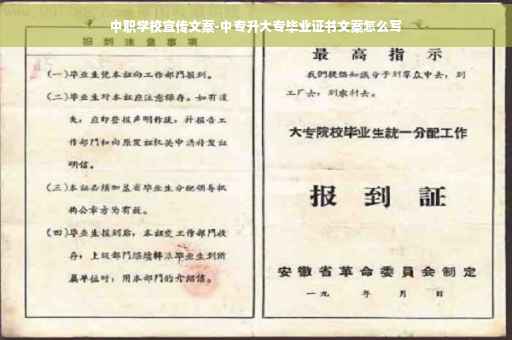 中职学校宣传文案-中专升大专毕业证书文案怎么写
报到注意事项
(一)毕业生凭本证向工作部门报到。
(二)毕业生对本证应注意保存。如有遗
失,应即登报声明作废,并报告工
作部门和向原发证机关申请补发证
明信。
(三)本证必须加盖省毕业生分配领导机
构公章方为有效。
(四)毕业生报到后,本证交工作部门收
存;上级部门继续转派毕业生到所
属单位时,用本部门的介绍信。
最高指示
我们提倡知识分子到群众中去,到
工厂去,到农村去。
大专院校毕业生统一分配工作
报到証
安徽省革命委員会制定
一九 年 月 日